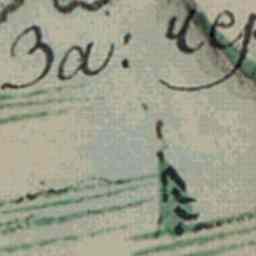 За: чер